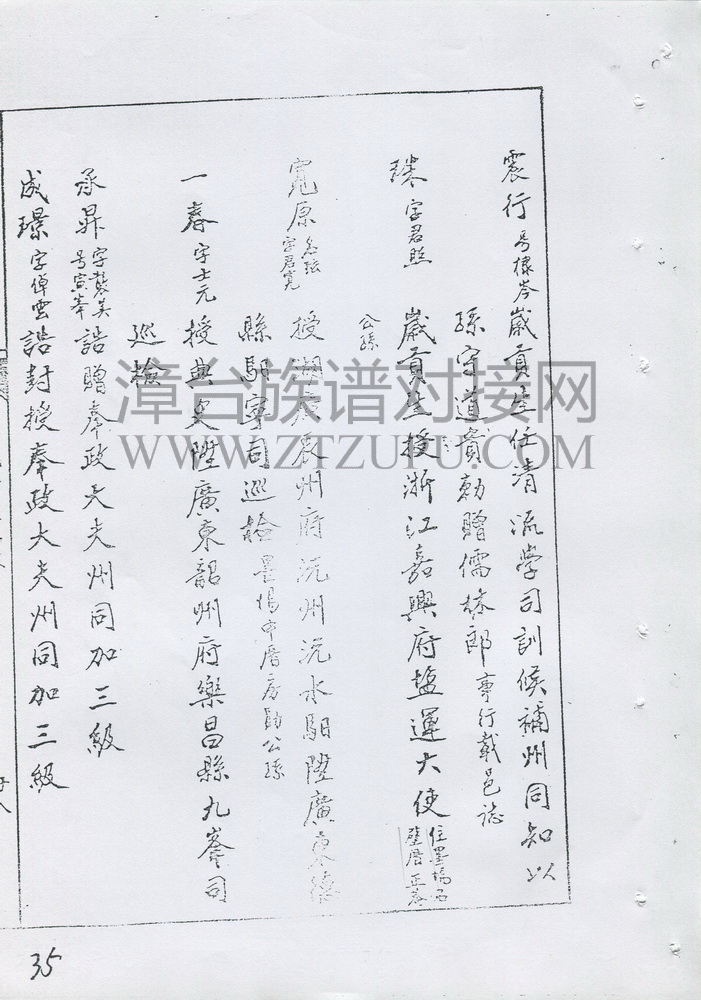 震行 号樣岑 歲貢生任清流学司訓候補州同知以
孫守道貴勅贈儒林郎 事行載邑誌
瑧 字君照 歲貢生授浙江嘉興府塩運大使 住墨場
公孫
寬原 字君亮 授湖廣袁州府沅州沅水駟陞廣東
縣駟寧司巡檢 墨場中厝房 公孫
一春 字士元 授典吏陞廣東韶州府樂昌縣九峯司
巡檢
承昇 字賛美 号寅峯 誥贈奉政大夫州同加三級
成璟 字倬雲 誥封授奉政大夫州同加三級
35
漳台族谱对接网
WWW.ZTZUPU.COM